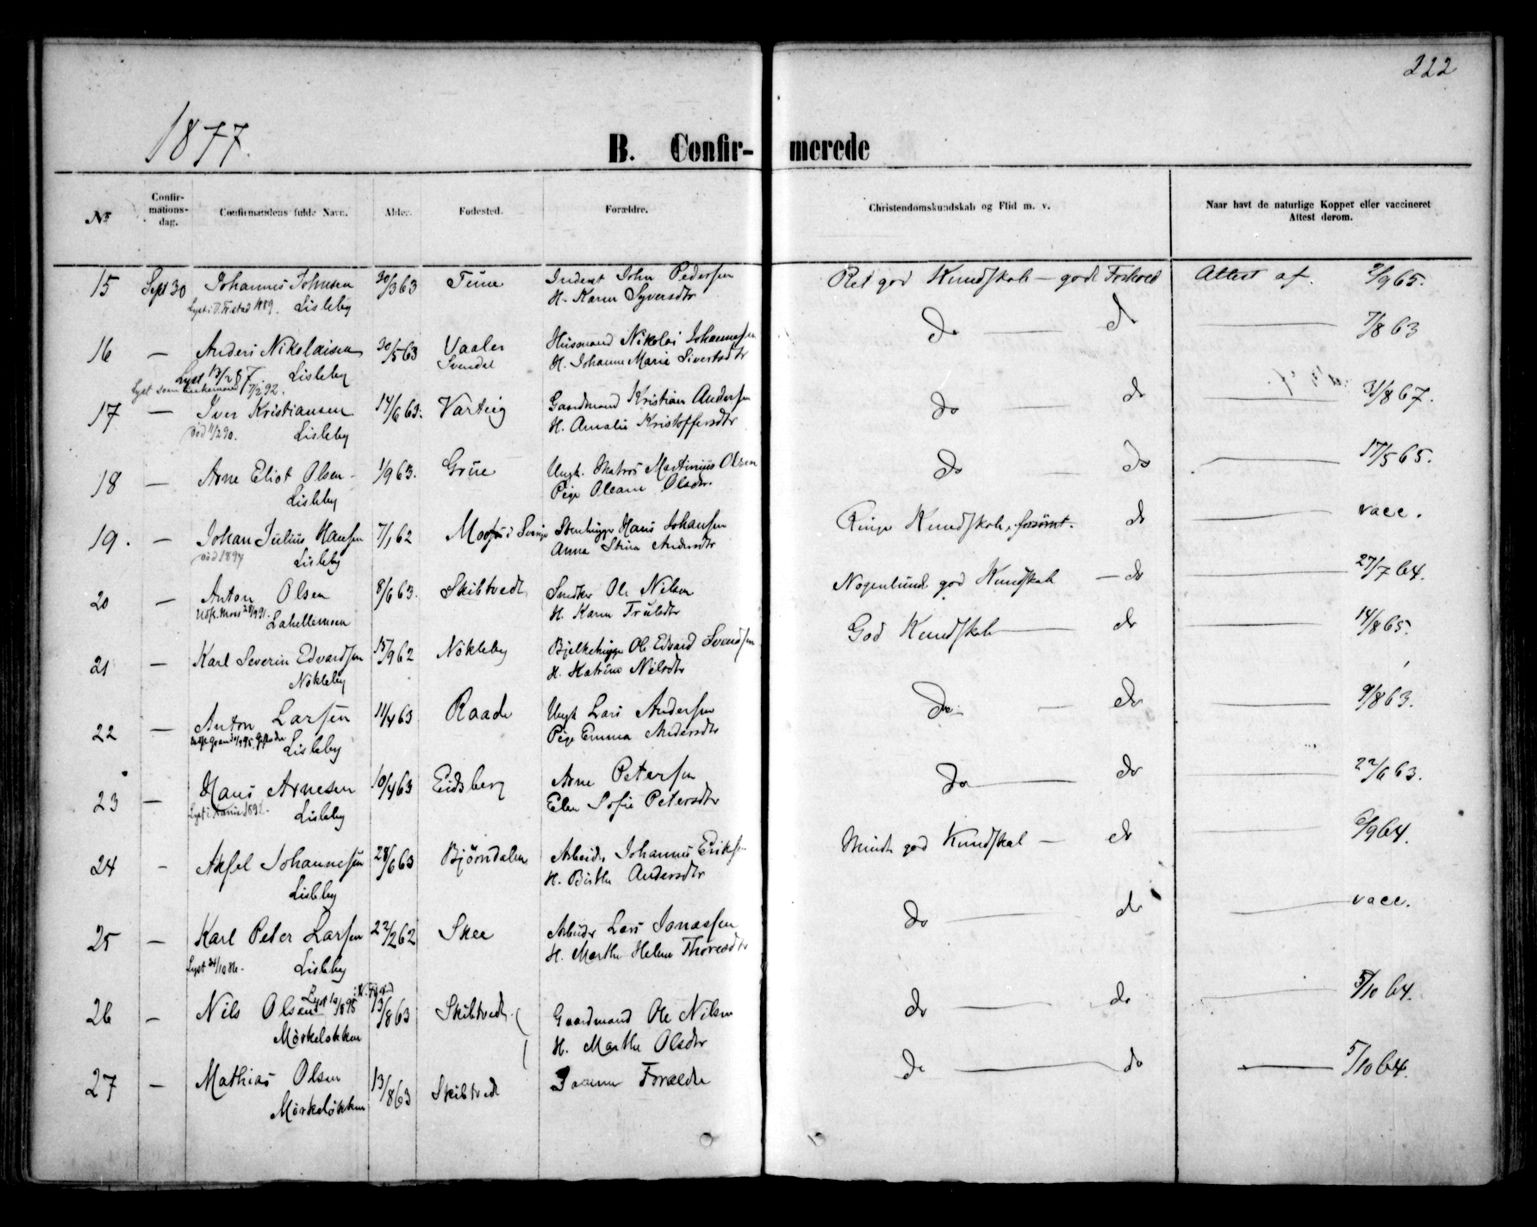 222
1877.
B. Confir- merede
No
Confir-
mations-
dag.
Confirmandens fulde Navn.
Alder.
Fødested.
Forældre.
Christendomskundskab og Flid m. v.
Naar havt de naturlige Kopper eller vaccineret
Attest derom.
15 Sept 30 Johannes Johnsen 30/3 63 Tune Inderst John Pedersen Ret god Kundskab – godt Forhold Attest af 2/9 65.
Lisleby H. Karen Syversdtr
16 — Anders Nikolaisen 30/5 63 Vaaler Husmand Nikolai Johannesen do — do — 7/8 63
Lyst 13/2 87 Lisleby Svendal H. Johanne Marie Sivertsdtr
Lyst som enkemand 7/2 92.
17 — Iver Kristiansen 14/6 63. Varteig Gaardmand Kristian Andersen do — do — 31/8 67.
Lisleby H. Amalie Kristoffersdtr
18 — Arne Eliot Olsen 1/9 63. Grue Ungk. Matros Martinius Olsen do — do — 17/5 65.
Lisleby Pige Oleane Olsdtr.
19. — Johan Julius Hansen 7/1 62 i Sverige Stenhugger Hans Johansen Ringe Kundskab, forsømt. do — vacc.
død 1894 Lisleby Anna Stina Andersdtr
20 — Anton Olsen 8/6 63. Skibtvedt Smed Ole Nilsen Nogenlunde god Kundskab — do — 27/7 64.
Lahellemoen H. Karen Trulsdtr
21 — Karl Severin Edvardsen 15/9 62 Nökleby Bjelkehugger Ole Edvard Svendsen God Kundskab — do — 14/8 65.
Nökleby H. Katrine Nilsdtr
22 — Anton Larsen 11/4 63 Raade Ungk Lars Andersen do — do — 9/8 63.
Lisleby Pige Emma Andersdtr
23 — Hans Arnesen 10/4 63 Eidsberg Arne Petersen do — do — 22/6 63.
Lisleby Elen Sofie Petersdtr
24 - Aksel Johannesen 28/6 63 Björndalen Arbeider Johannes Eriksen Mindre god Kundskab — do — 6/9 64.
Lisleby H. Birthe Andersdtr
25 — Karl Peter Larsen 22/2 62 Skee Arbeider Lars Jonassen do — do — vacc.
Lyst 24/10 86. Lisleby H. Marthe Helene Thoresdtr
26 — Nils Olsen 13/8 63 Skibtvedt Gaardmand Ole Nilsen do — do — 5/10 64.
Mörkelökken H. Marthe Olsdtr
27 — Mathias Olsen 13/8 63 Skibtvedt Samme Forældre do — do — 5/10 64.
Mörkelökken